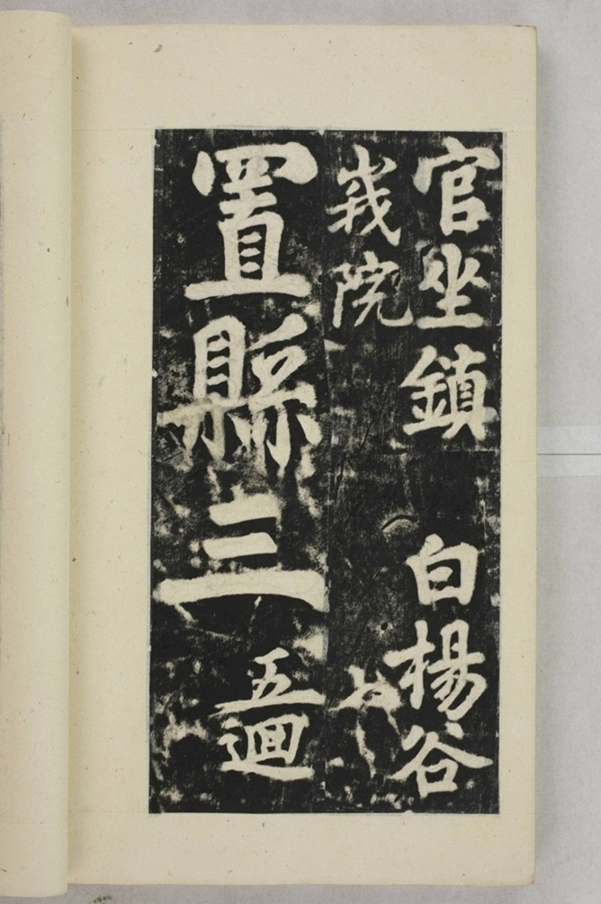 官坐鎮 白楊谷
峩院
置縣三 五迴